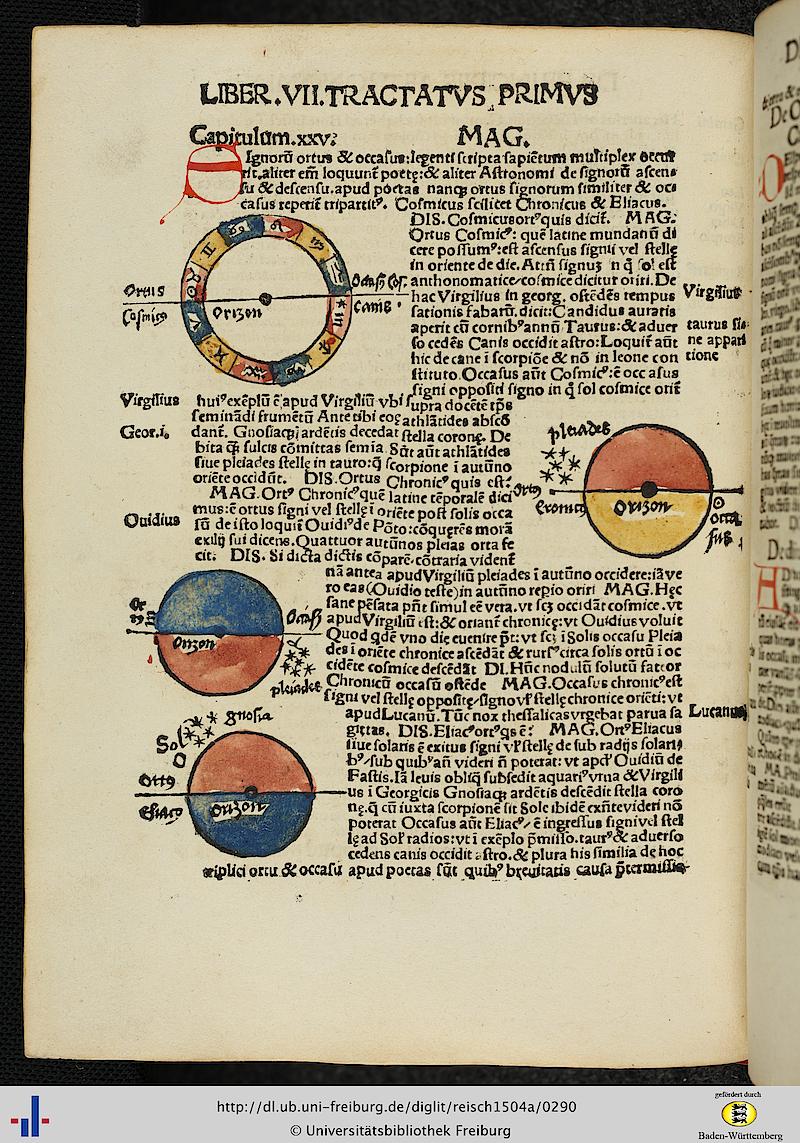 LIBER.VII.TRACTATVS PRIMVS
Capitulum.xxv. MAG.
Ignorū ortus & occasus:legenti scripta sapiētum multiplex occur
rit.aliter em̄ loquunt̄ poetę:& aliter Astronomi de signorū ascen
su & descensu.apud poetas nanq ortus signorum similiter & oc
casus reperit̄ tripartitꝰ. Cosmicus scilicet Chronicus & Eliacus.
DIS. Cosmicus ortꝰ quis dicit̄. MAG.
Ortus Cosmicꝰ: quē latine mundanū di
cere possumꝰ:est ascensus signi vel stellę
in oriente de die. Attn̄ signuȝ in q̄ sol est
anthonomatice cosmice dicitur oriri. De
hac Virgilius in georg. ostēdēs tempus
sationis fabarū, dicit: Candidus auratis
aperit cū cornibꝰ annū Taurus: & aduer
so cedēs Canis occidit astro: Loquit̄ aūt
hic de cane ī scorpiōe & nō in leone con
stituto. Occasus aūt Cosmicꝰ: ē occasus
signi oppositi signo in q̄ sol cosmice orit̄
Ortus
Cosmicꝰ
Orizon
Occasꝰ Cos.
Canis
Virgilius
taurus sig
ne appari
tione
Virgilius
Geor.i.
huiꝰ exēplū ē apud Virgiliū vbi supra docēte tp̄s
seminādi frumētū Ante tibi eoę athlātides abscō
dant̄. Gnosiaq; ardētis decedat stella coronę. De
bita q̄ sulcis cōmittas semīa. Sūt aūt athlātides
siue pleiades stellę in tauro: q̄ scorpione ī autūno
oriēte occidūt. DIS. Ortus Chronicꝰ quis est?
MAG. Ortꝰ Chronicꝰ quē latine tēporalē dici
mus: ē ortus signi vel stellę ī oriēte post solis occa
sū de isto loquit̄ Ouidiꝰ de Pōto: cōquerēs morā
exilij sui dicens. Quattuor autūnos pleias orta fe
cit. DIS. Si dicta dictis cōparē. cōtraria vident̄
Ouidius
pleiades
Ortꝰ
Cronicꝰ
Orizon
Occa
sus
nā antea apud Virgiliū pleiades ī autūno occidere: iā ve
ro eas (Ouidio teste) in autūno repio oriri MAG. Hęc
sane pēsata pn̄t simul eē vera. vt scȝ occidāt cosmice. vt
apud Virgiliū est: & oriant̄ chronice: vt Ouidius voluit
Quod qdē vno die euenire p̄t: vt scȝ ī Solis occasu Pleia
des ī oriēte chronice ascēdāt & rursꝰ circa solis ortū ī oc
cidēte cosmice descēdāt DI. Hūc nodulū solutū fateor
Chronicū occasū ostēde MAG. Occasus chronicꝰ est
signi vel stellę oppositę signo vꝉ stellę chronice oriēti: vt
apud Lucanū. Tūc nox thessalicas vrgebat parua sa
gittas. DIS. Eliacꝰ ortꝰ qs ē? MAG. Ortꝰ Eliacus
siue solaris ē exitus signi vꝉ stellę de sub radijs solari
bꝰ sub quibꝰ añ videri n̄ poterat: vt apd̄ Ouidiū de
Fastis. Iā leuis obliq̄ subsedit aquariꝰ vrna & Virgili
us ī Georgicis Gnosiaq; ardētis descēdit stella coro
nę. q̄ cū iuxta scorpionē sit Sole ibidē exn̄te videri nō
poterat Occasus aūt Eliacꝰ ē ingressus signi vel stel
lę ad Solꝭ radios: vt ī exēplo p̄misso. taurꝰ & aduerso
cedens canis occidit astro. & plura his similia de hoc
triplici ortu & occasu apud poetas sūt quibꝰ breuitatis causa p̄termissis
Lucanus
Orizon
Occasꝰ
pleiades
gnosia
Sol
Ortus
Eliacꝰ
Orizon
http://dl.ub.uni-freiburg.de/diglit/reisch1504a/0290
© Universitätsbibliothek Freiburg
gefördert durch
Baden-Württemberg